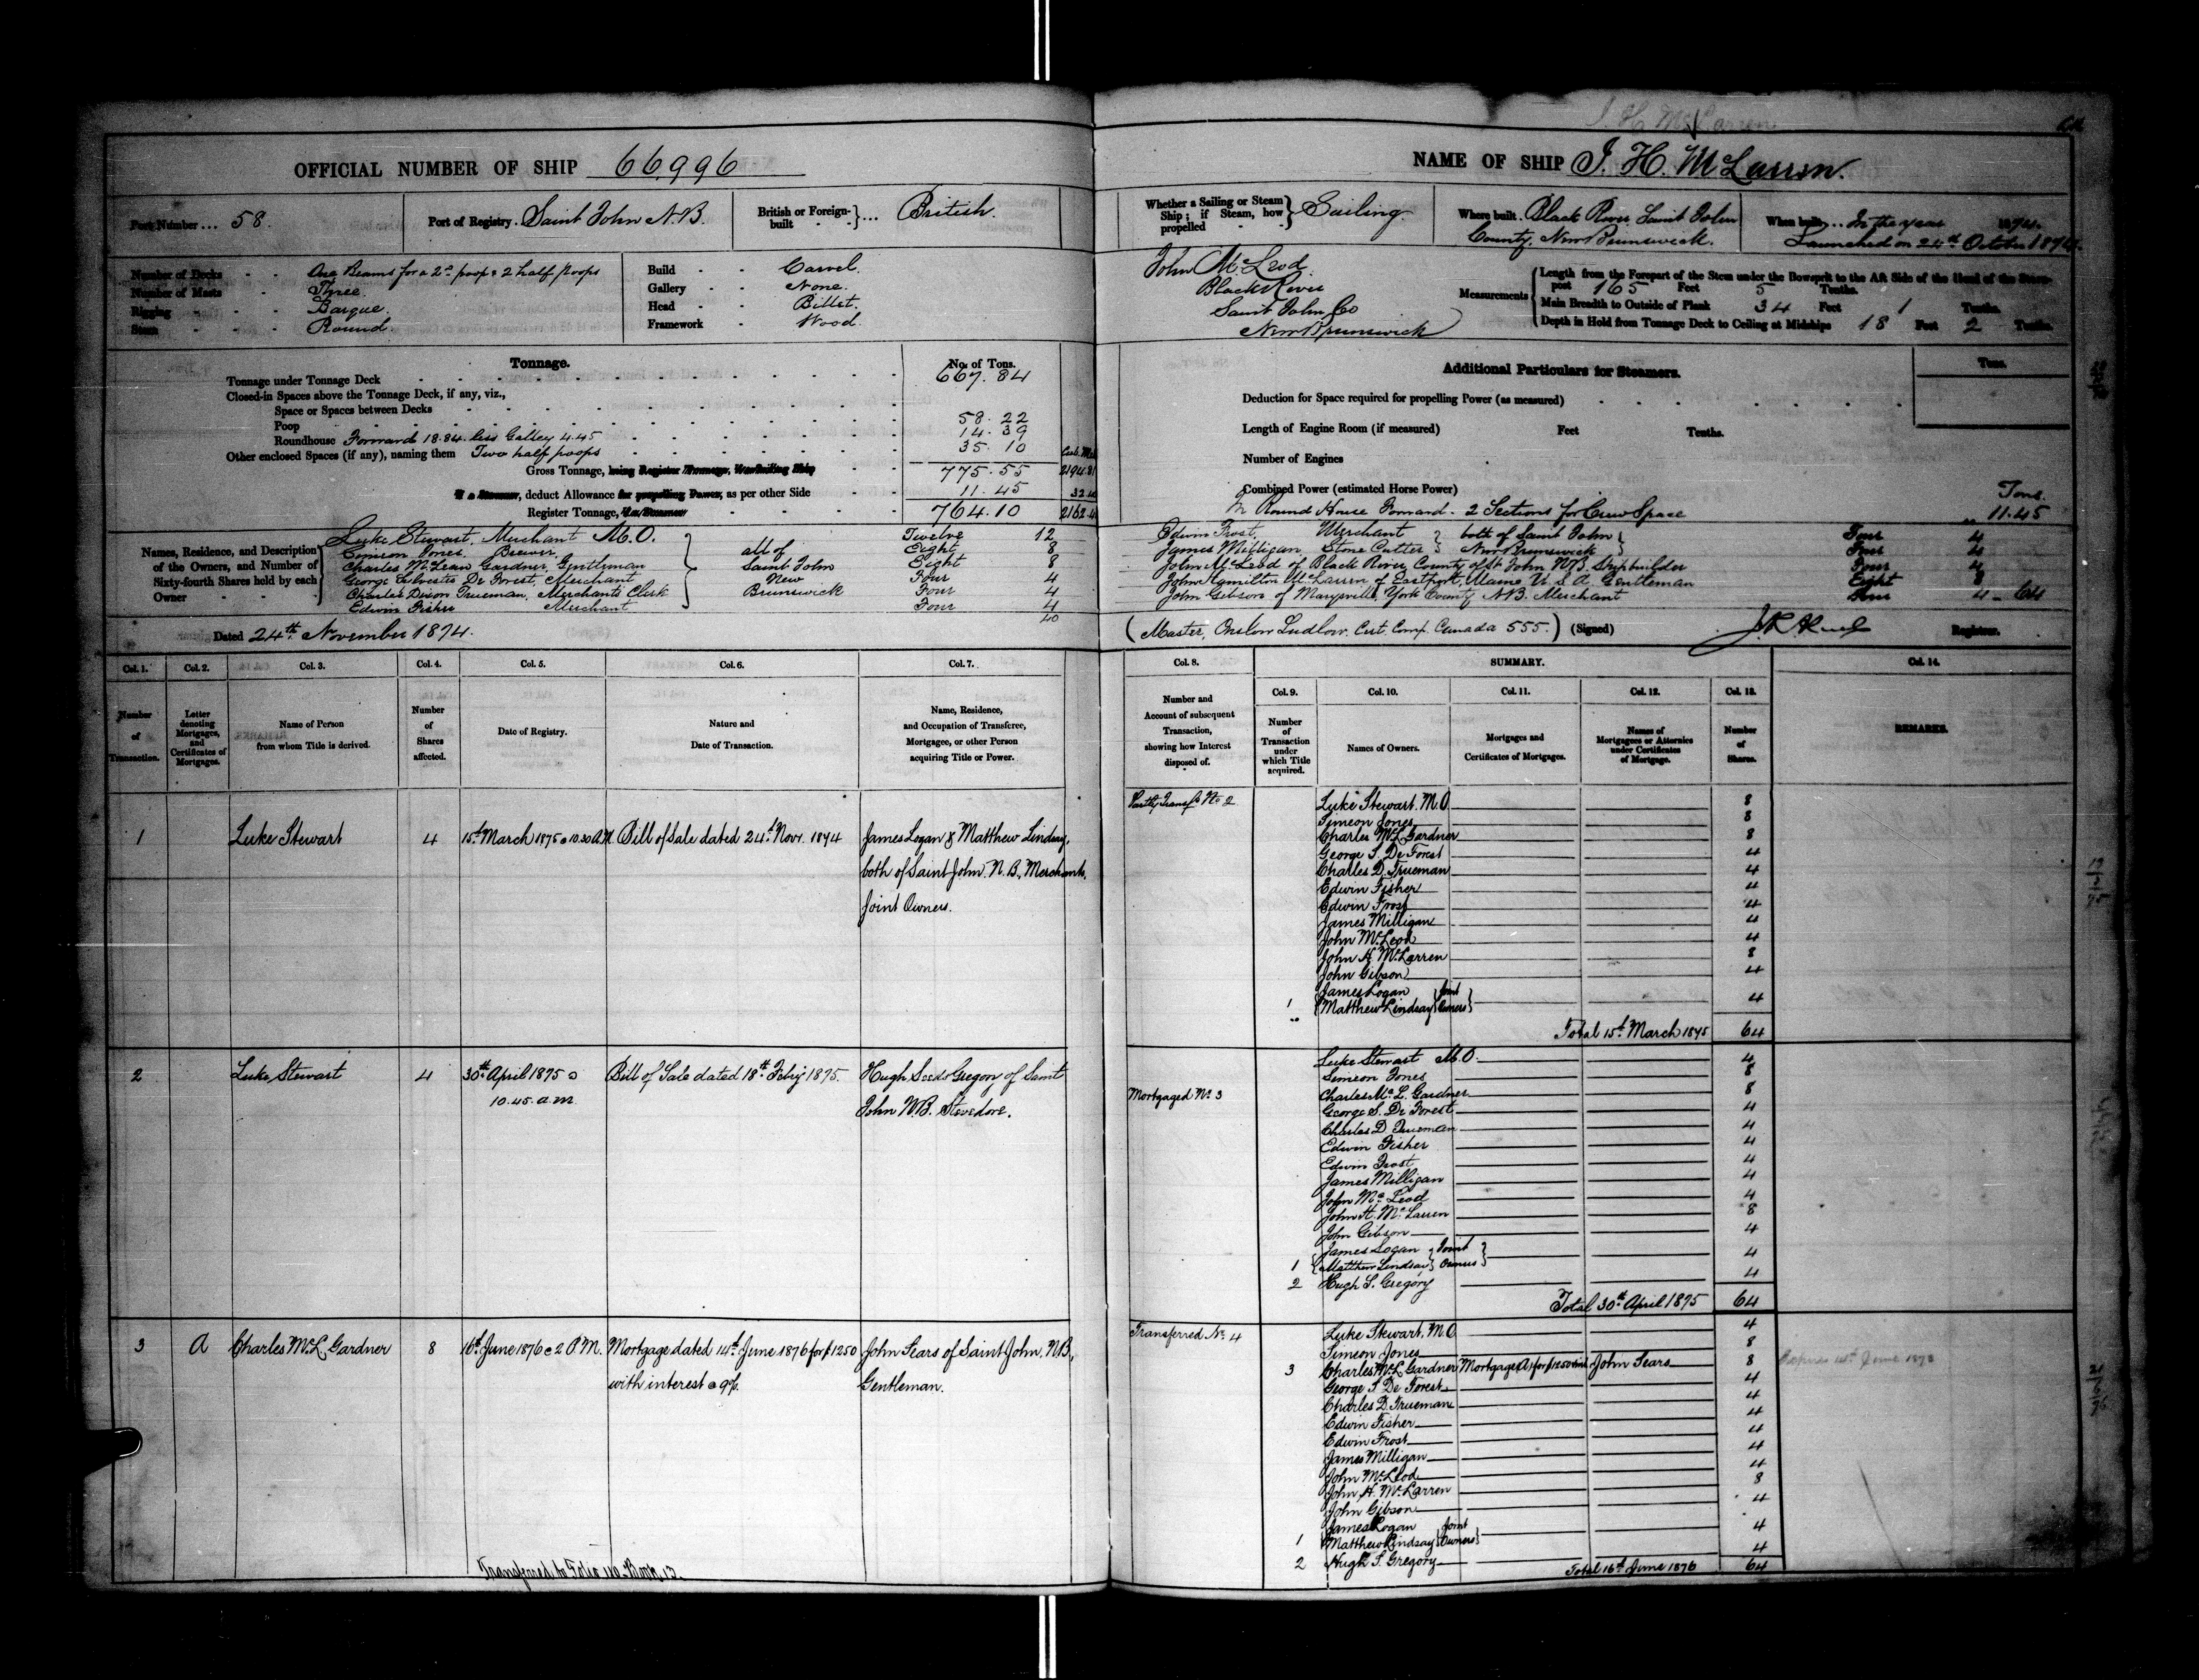 J. H. McLarren
OFFICIAL NUMBER OF SHIP 66,996
Port Number ... 58.
Port of Registry. Saint John N.B.
British or Foreign-built ... British.
Number of Decks - - One Beams for a 2nd poop & 2 half poops
Number of Masts - Three.
Rigging - - Barque.
Stern - - - Round.
Build - - Carvel.
Gallery - - None.
Head - - Billet.
Framework - Wood.
Tonnage.
No. of Tons.
Tonnage under Tonnage Deck 667.84
Closed-in Spaces above the Tonnage Deck, if any, viz.,
Space or Spaces between Decks
Poop 58.22
Roundhouse Forward 18.84 less Galley 4.45 14.39
Other enclosed Spaces (if any), naming them Two half poops 35.10
Gross Tonnage, being Register Tonnage, 775.55
If a Steamer, deduct Allowance for propelling Power, as per other Side 11.45
Register Tonnage, 764.10
Names, Residence, and Description of the Owners, and Number of Sixty-fourth Shares held by each Owner
Luke Stewart, Merchant M.O. Twelve 12
Simeon Jones. Brewer, Eight 8
Charles McLean Gardner, Gentleman Eight 8
George Sylvester De Forest, Merchant Four 4
Charles Dixon Trueman, Merchants Clerk Four 4
Edwin Fisher Merchant Four 4
all of Saint John New Brunswick
40
Dated 24th November 1874.
NAME OF SHIP J. H. McLarren.
Whether a Sailing or Steam Ship; if Steam, how propelled Sailing.
Where built. Black River Saint John County, New Brunswick.
When built... In the year 1874.
Launched on 24th October 1874.
John McLeod.
Black River
Saint John Co
New Brunswick
Measurements
Length from the Forepart of the Stem under the Bowsprit to the Aft Side of the Head of the Stern-post 165 Feet 5 Tenths.
Main Breadth to Outside of Plank 34 Feet 1 Tenths.
Depth in Hold from Tonnage Deck to Ceiling at Midships 18 Feet 2 Tenths.
Additional Particulars for Steamers.
Tons.
Deduction for Space required for propelling Power (as measured)
Length of Engine Room (if measured) Feet Tenths.
Number of Engines
Combined Power (estimated Horse Power)
In Round House Forward. 2 Sections for Crew Space Tons. 11.45
Edwin Frost, Merchant Four 4
James Milligan, Stone Cutter Four 4
both of Saint John New Brunswick
John McLeod of Black River, County of St John N.B. Shipbuilder Four 4
John Hamilton McLarren of Eastport, Maine U.S.A. Gentleman Eight 8
John Gibson of Marysville, York County N.B. Merchant Four 4 - 64
(Master, Onslow Ludlow. Cert. Comp. Canada 555.) (Signed) Registrar.
Col. 1. Col. 2. Col. 3. Col. 4. Col. 5. Col. 6. Col. 7.
Number of Transaction.
Letter denoting Mortgages, and Certificates of Mortgages.
Name of Person from whom Title is derived.
Number of Shares affected.
Date of Registry.
Nature and Date of Transaction.
Name, Residence, and Occupation of Transferee, Mortgagee, or other Person acquiring Title or Power.
Col. 8. SUMMARY. Col. 14.
Number and Account of subsequent Transaction, showing how Interest disposed of.
Col. 9. Col. 10. Col. 11. Col. 12. Col. 13.
Number of Transaction under which Title acquired.
Names of Owners.
Mortgages and Certificates of Mortgages.
Names of Mortgagees or Attornies under Certificates of Mortgage.
Number of Shares.
REMARKS.
1 Luke Stewart 4 15th March 1875 @ 10.30 A.M. Bill of Sale dated 24th Novr. 1874 James Logan & Matthew Lindsay,
both of Saint John. N.B., Merchants,
Joint Owners.
Partly Transfd No 2
Luke Stewart. M.O. 8
Simeon Jones 8
Charles McL Gardner 8
George S. De Forest 4
Charles D. Trueman 4
Edwin Fisher 4
Edwin Frost 4
James Milligan 4
John McLeod 4
John H. McLarren 8
John Gibson 4
1 James Logan Matthew Lindsay Joint Owners 4
Total 15th March 1875 64
2 Luke Stewart 4 30th April 1875 @ 10.45. a.m. Bill of Sale dated 18th Feby 1875. Hugh Seeds Gregory of Saint
John N.B. Stevedore.
Mortgaged No 3
Luke Stewart M.O. 4
Simeon Jones 8
Charles Mc L. Gardner 8
George S. De Forest 4
Charles D Trueman 4
Edwin Fisher 4
Edwin Frost 4
James Milligan 4
John Mc Leod 4
John H. McLarren 8
John Gibson 4
1 James Logan Matthew Lindsay Joint Owners 4
2 Hugh S. Gregory 4
Total 30th April 1875 64
3 A Charles McL. Gardner 8 16th June 1876 @ 2 P.M. Mortgage dated 14th June 1876 for $1250 John Sears of Saint John, N.B.,
with interest @ 9%. Gentleman.
Transferred No 4
Luke Stewart, M.O 4
Simeon Jones 8
3 Charles McL Gardner Mortgage (A) for $1250 John Sears 8
George S De Forest 4
Charles D. Trueman 4
Edwin Fisher 4
Edwin Frost 4
James Milligan 4
John McLeod 4
John H. McLarren 8
John Gibson 4
1 James Logan Matthew Lindsay Joint Owners 4
2 Hugh S. Gregory 4
Total 16th June 1876 64
Transferred to Folio